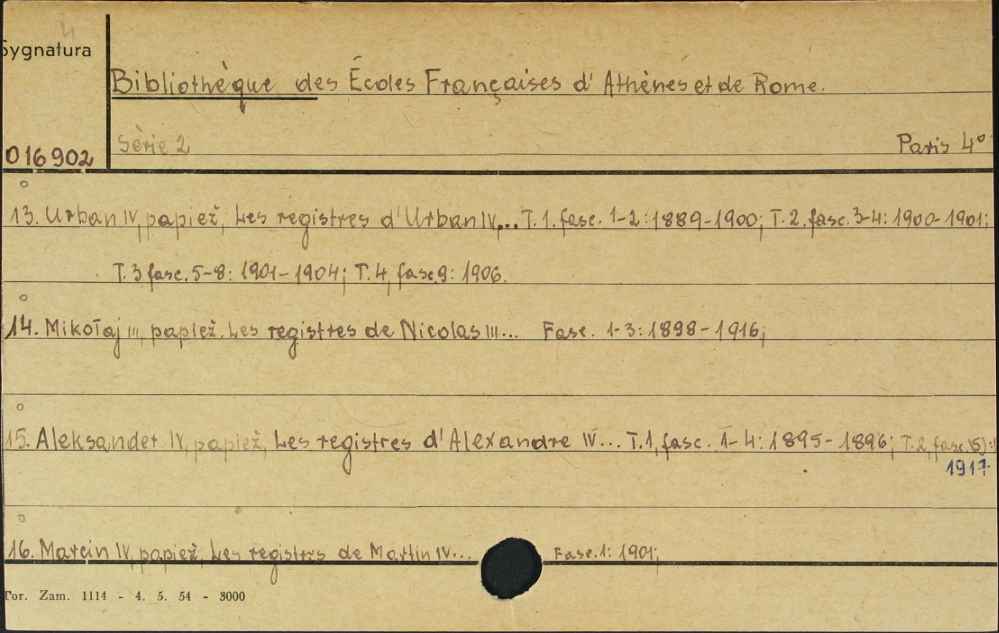 4
Sygnatura
Bibliothèque des Écoles Françaises d' Athènes et de Rome.
Série 2 Paris 4°
016902
13. Urban IV, papież, Les registres d'Urban IV... T.1. fasc. 1-2: 1889-1900; T.2. fasc. 3-4: 1900-1901;
T.3 fasc. 5-8: 1901-1904; T.4, fasc 9: 1906.
14. Mikołaj III, papież. Les registres de Nicolas III... Fasc. 1-3: 1898-1916;
15. Aleksander IV, papież, Les registres d'Alexandre IV... T.1, fasc. 1-4: 1895-1896; T.2, fasc. (5):
1917
16. Marcin IV, papież, Les registres de Martin IV... Fasc. 1: 1901;
For. Zam. 1114 - 4. 5. 54 - 3000